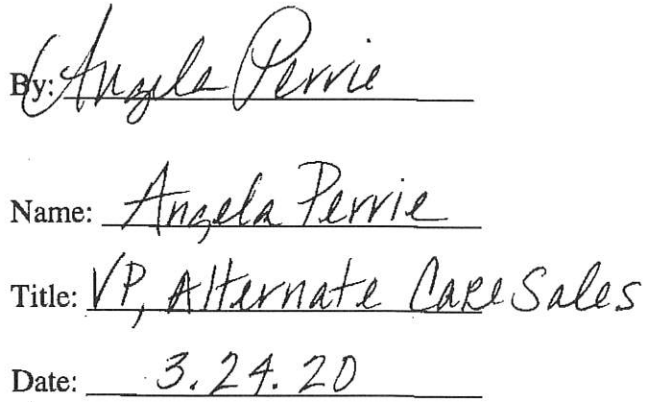 By: Angela Perrie
Name: Angela Perrie
Title: VP, Alternate Care Sales
Date: 3.24.20